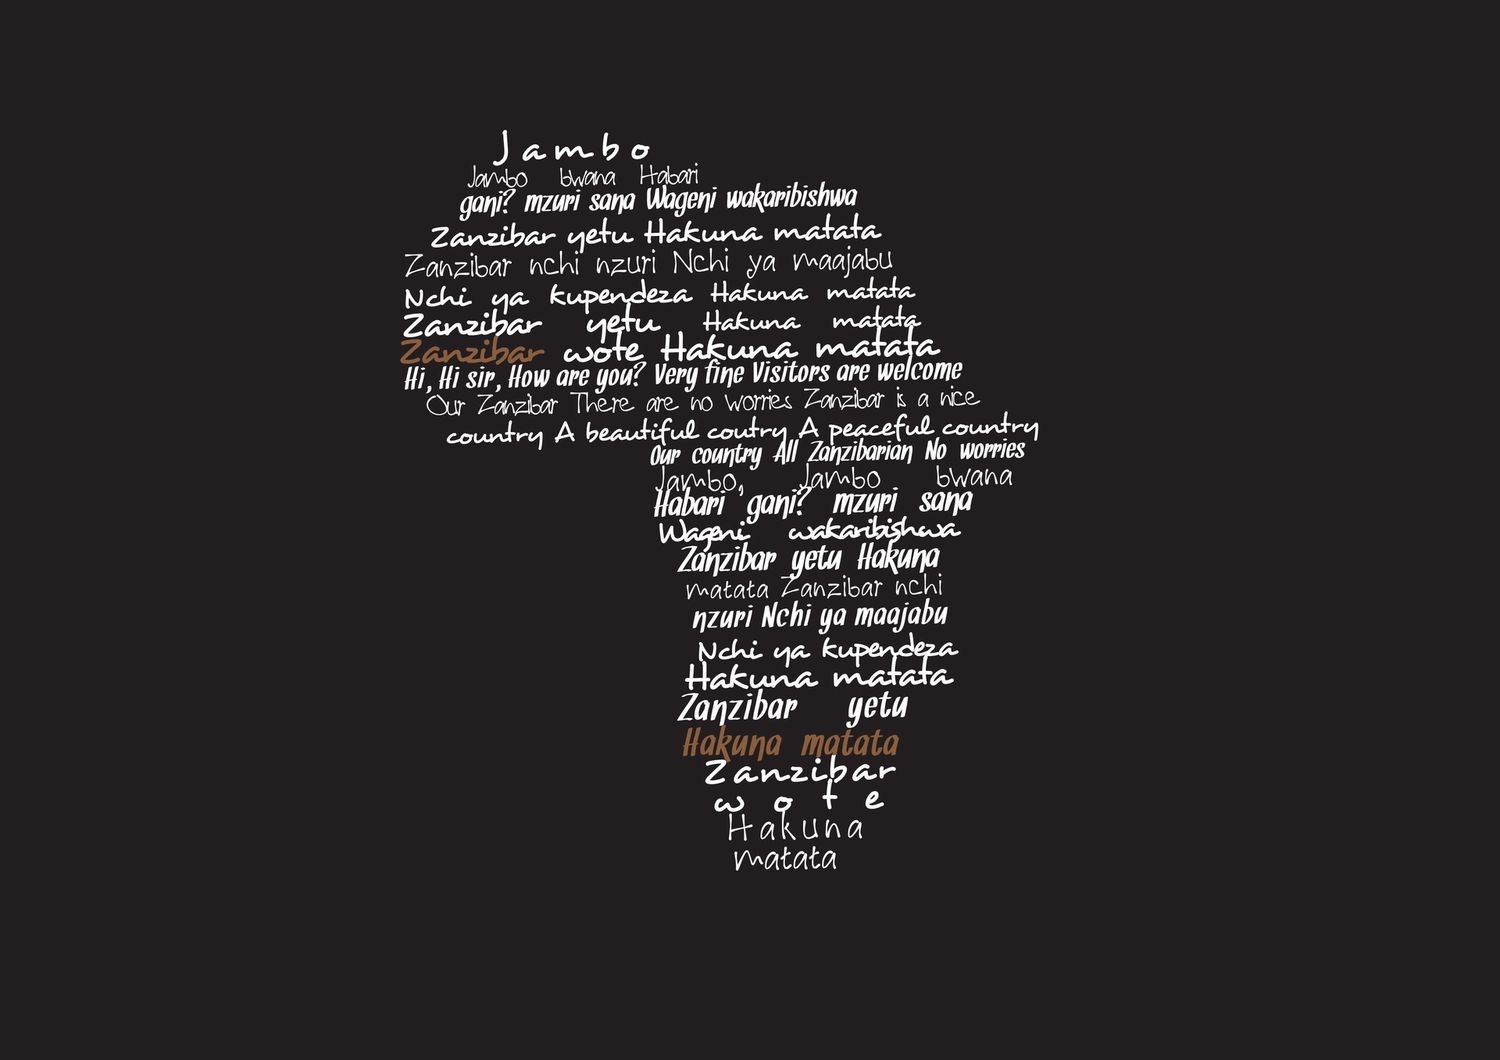 Jambo
Jambo bwana Habari
gani? mzuri sana Wageni wakaribishwa
Zanzibar yetu Hakuna matata
Zanzibar nchi nzuri Nchi ya maajabu
Nchi ya kupendeza Hakuna matata
Zanzibar yetu Hakuna matata
Zanzibar wote Hakuna matata
Hi, Hi sir, How are you? Very fine Visitors are welcome
Our Zanzibar There are no worries Zanzibar is a nice
country A beautiful coutry A peaceful country
Our country All Zanzibarian No worries
Jambo, Jambo bwana
Habari gani? mzuri sana
Wageni wakaribishwa
Zanzibar yetu Hakuna
matata Zanzibar nchi
nzuri Nchi ya maajabu
Nchi ya kupendeza
Hakuna matata
Zanzibar yetu
Hakuna matata
Zanzibar
wote
Hakuna
matata